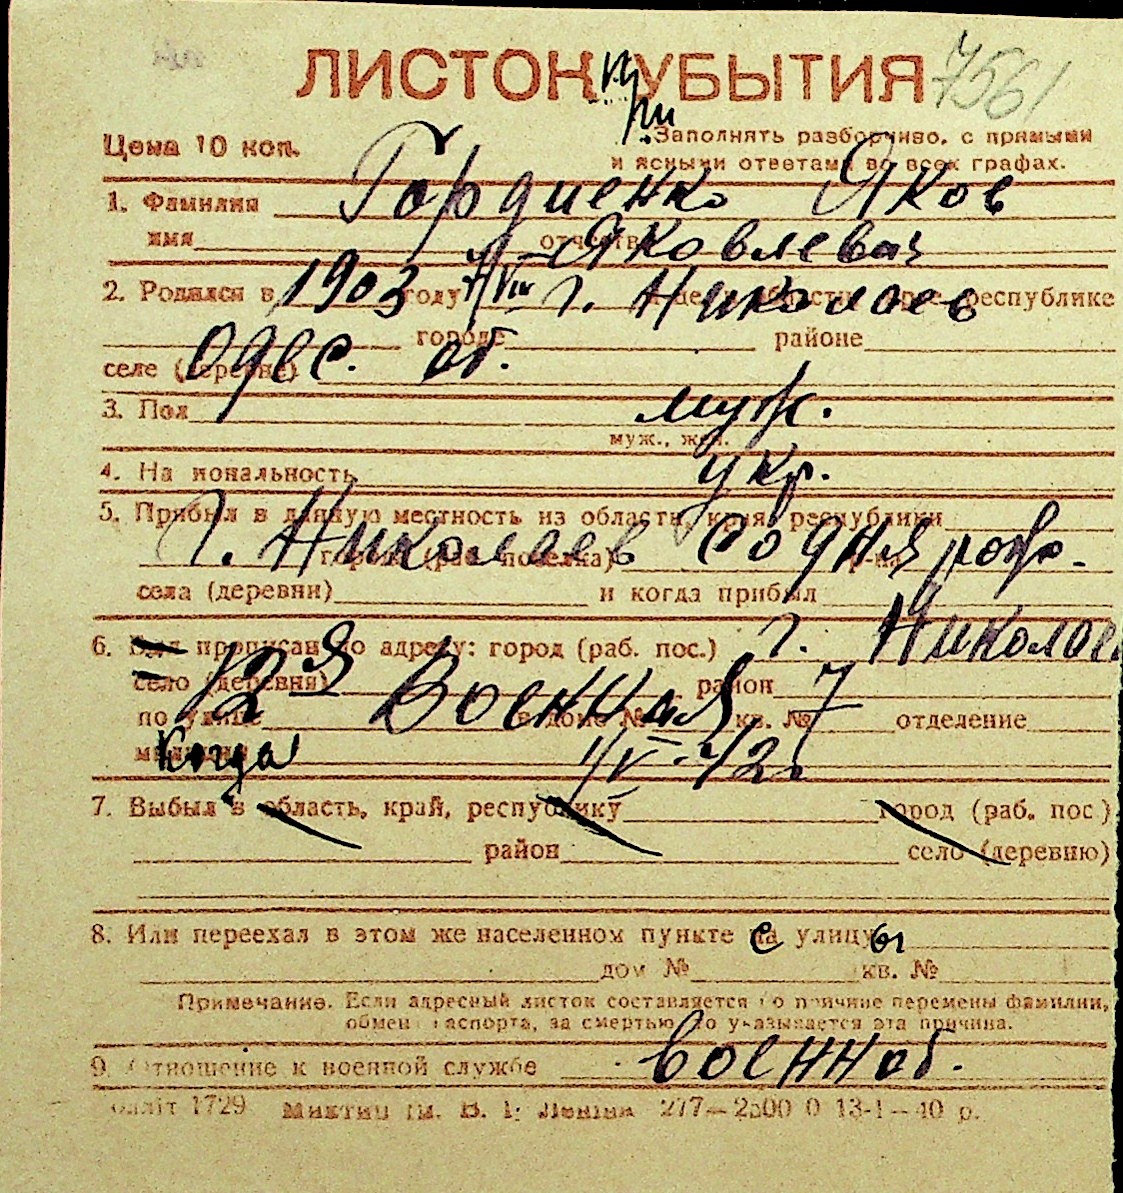 ЛИСТОК при УБЫТИЯ 7561
Цена 10 коп. Заполнять разборчиво, с прямыми
и ясными ответами во всех графах.
1. Фамилия Гордиенко Яков
имя отчество Яковлевич
2. Родился в 1903 году 7/VIII г. Николаев республике
городе районе
селе (деревне) Одес. об.
3. Пол муж.
муж., жен.
4. Национальность укр.
5. Прибыл в данную местность из области, края, республики
г. Николаев со дня рожд.
города (раб. поселка) р-на
села (деревни) и когда прибыл
6. Был прописан по адресу: город (раб. пос.) г. Николаев
село (деревня) 12я Военная район 7
по улице в доме № кв. № отделение
милиции Когда 1/IV-42г
7. Выбыл в область, край, республику город (раб. пос)
район село (деревню)
8. Или переехал в этом же населенном пункте с улицы
дом № кв. №
Примечание. Если адресный листок составляется по причине перемены фамилии,
обмена паспорта, за смертью, то указывается эта причина.
9. Отношение к военной службе военноб.
1729 В. І. Леніна 277—2500 0 13-1—40 р.